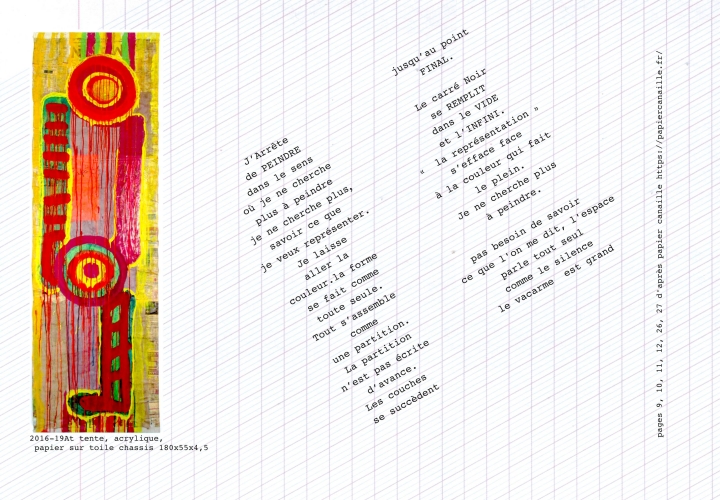 J'Arrête
de PEINDRE
dans le sens
où je ne cherche
plus à peindre
je ne cherche plus,
savoir ce que
je veux représenter.
Je laisse
aller la
couleur.la forme
se fait comme
toute seule.
Tout s'assemble
comme
une partition.
La partition
n'est pas écrite
d'avance.
Les couches
se succèdent
jusqu'au point
FINAL.
Le carré Noir
se REMPLIT
dans le VIDE
et l'INFINI.
" la représentation "
s'efface face
à la couleur qui fait
le plein.
Je ne cherche plus
à peindre.
pas besoin de savoir
ce que l'on me dit, l'espace
parle tout seul
comme le silence
le vacarme est grand
2016-19At tente, acrylique,
papier sur toile chassis 180x55x4,5
pages 9, 10, 11, 12, 26, 27 d'après papier canaille https://papiercanaille.fr/